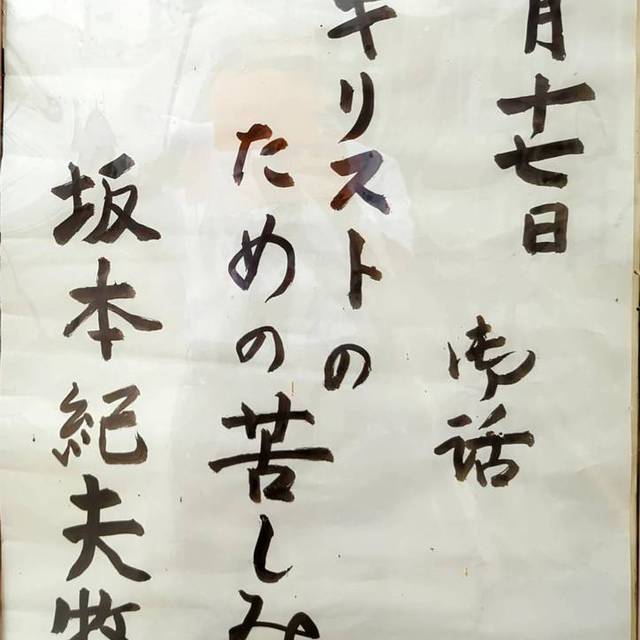 月十七日
御話
キリストの
ための苦しみ
坂本紀夫牧